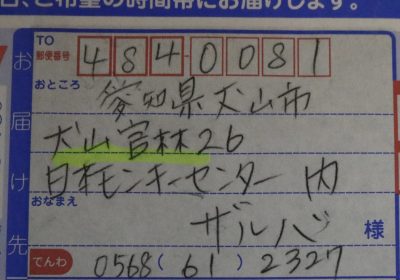 日、ご希望の時間帯にお届けします。
TO
郵便番号 484-0081
おところ
愛知県犬山市
犬山官林26
日本モンキーセンター内
おなまえ
ザルバ 様
お届け先
でんわ 0568(61)2327